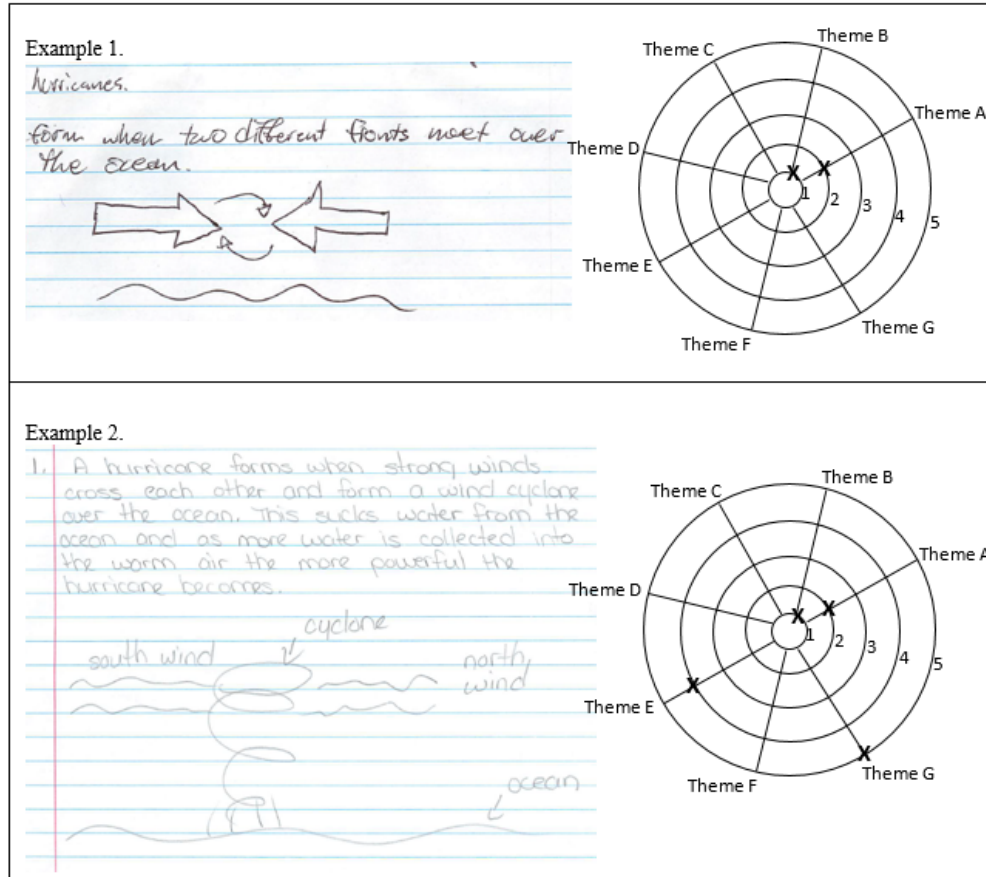 Example 1.
hurricanes.
form when two different fronts meet over
the ocean.
Theme C
Theme B
Theme A
Theme D
Theme E
Theme F
Theme G
X
X
1
2
3
4
5
Example 2.
1. A hurricane forms when strong winds
cross each other and form a wind cyclone
over the ocean. This sucks water from the
ocean and as more water is collected into
the warm air the more powerful the
hurricane becomes.
cyclone
south wind
north,
wind
ocean
Theme C
Theme B
Theme A
Theme D
Theme E
Theme F
Theme G
X
X
X
X
1
2
3
4
5